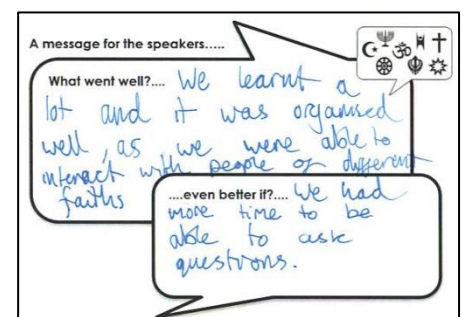 A message for the speakers.....
What went well?.... We learnt a
lot and it was organised
well, as we were able to
interact with people of different
faiths
....even better if?.... We had
more time to be
able to ask
questions.